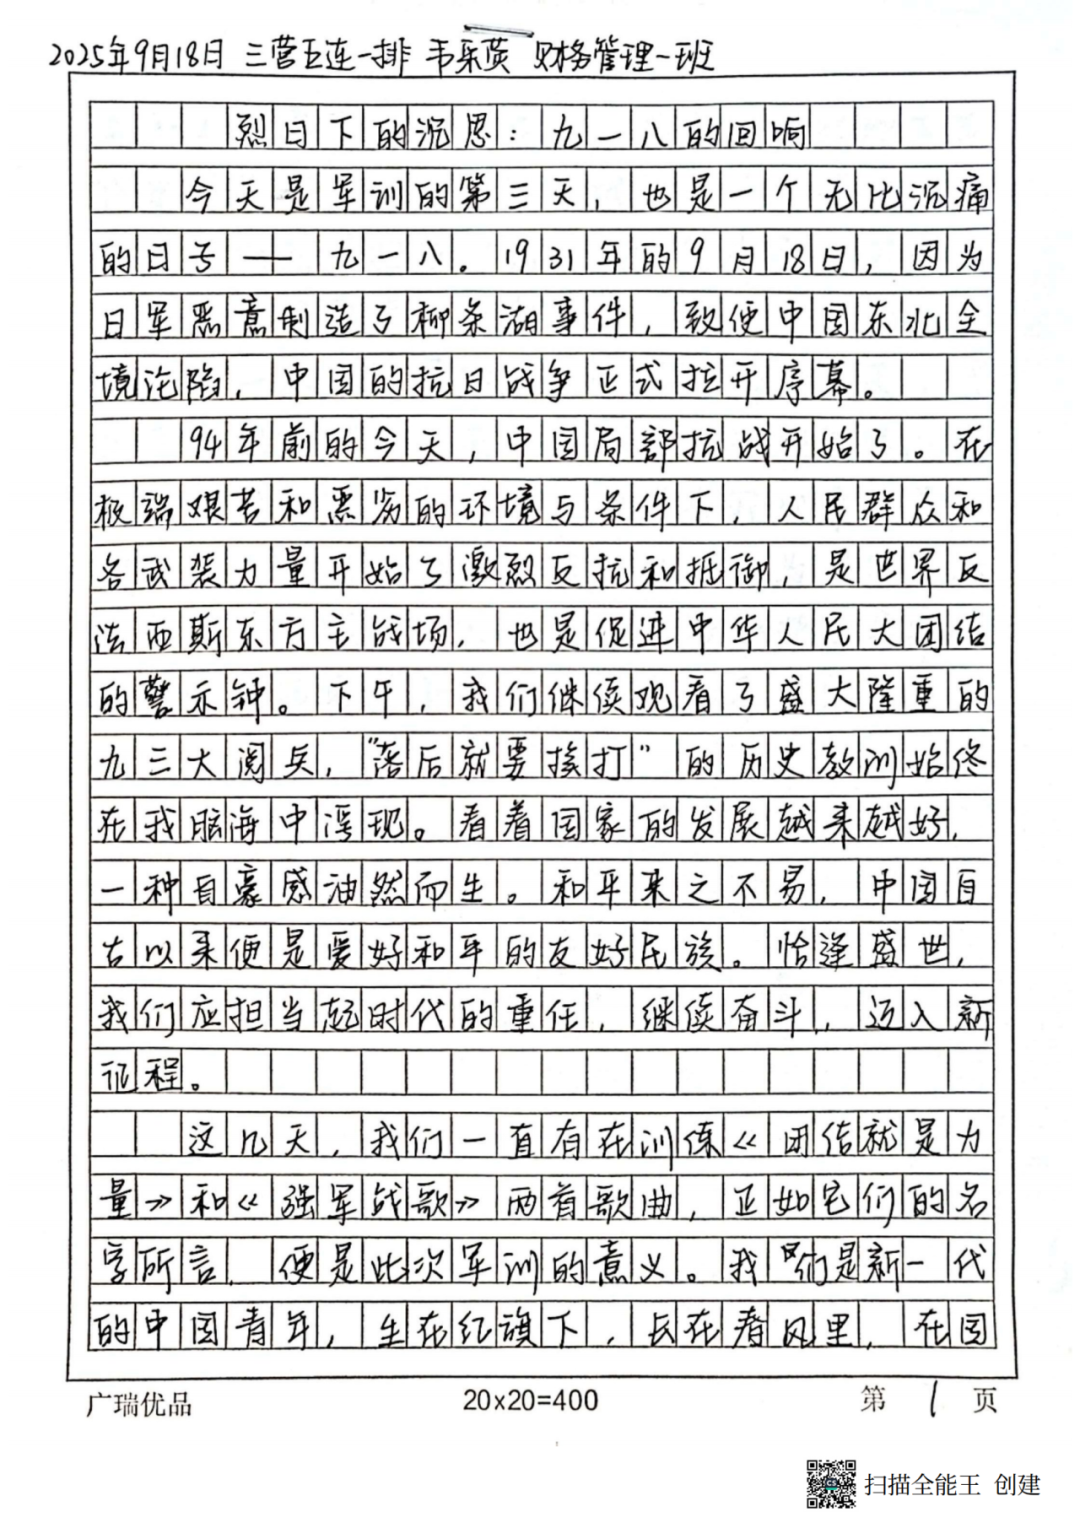 2025年9月18日 三营五连一排 韦乐 财务管理一班
烈日下的沉思：九一八的回响
今天是军训的第三天，也是一个无比沉痛
的日子——九一八。1931年的9月18日，因为
日军恶意制造了柳条湖事件，致使中国东北全
境沦陷，中国的抗日战争正式拉开序幕。
94年前的今天，中国局部抗战开始了。在
极端艰苦和恶劣的环境与条件下，人民群众和
各武装力量开始了激烈反抗和抵御，是世界反
法西斯东方主战场，也是促进中华人民大团结
的警示钟。下午，我们继续观看了盛大隆重的
九三大阅兵，“落后就要挨打”的历史教训始终
在我脑海中浮现。看着国家的发展越来越好，
一种自豪感油然而生。和平来之不易，中国自
古以来便是爱好和平的友好民族。恰逢盛世，
我们应担当起时代的重任，继续奋斗，迈入新
征程。
这几天，我们一直有在训练《团结就是力
量》和《强军战歌》两首歌曲，正如它们的名
字所言，便是此次军训的意义。我们是新一代
的中国青年，生在红旗下，长在春风里，在国
广瑞优品 20×20=400 第 1 页
扫描全能王 创建